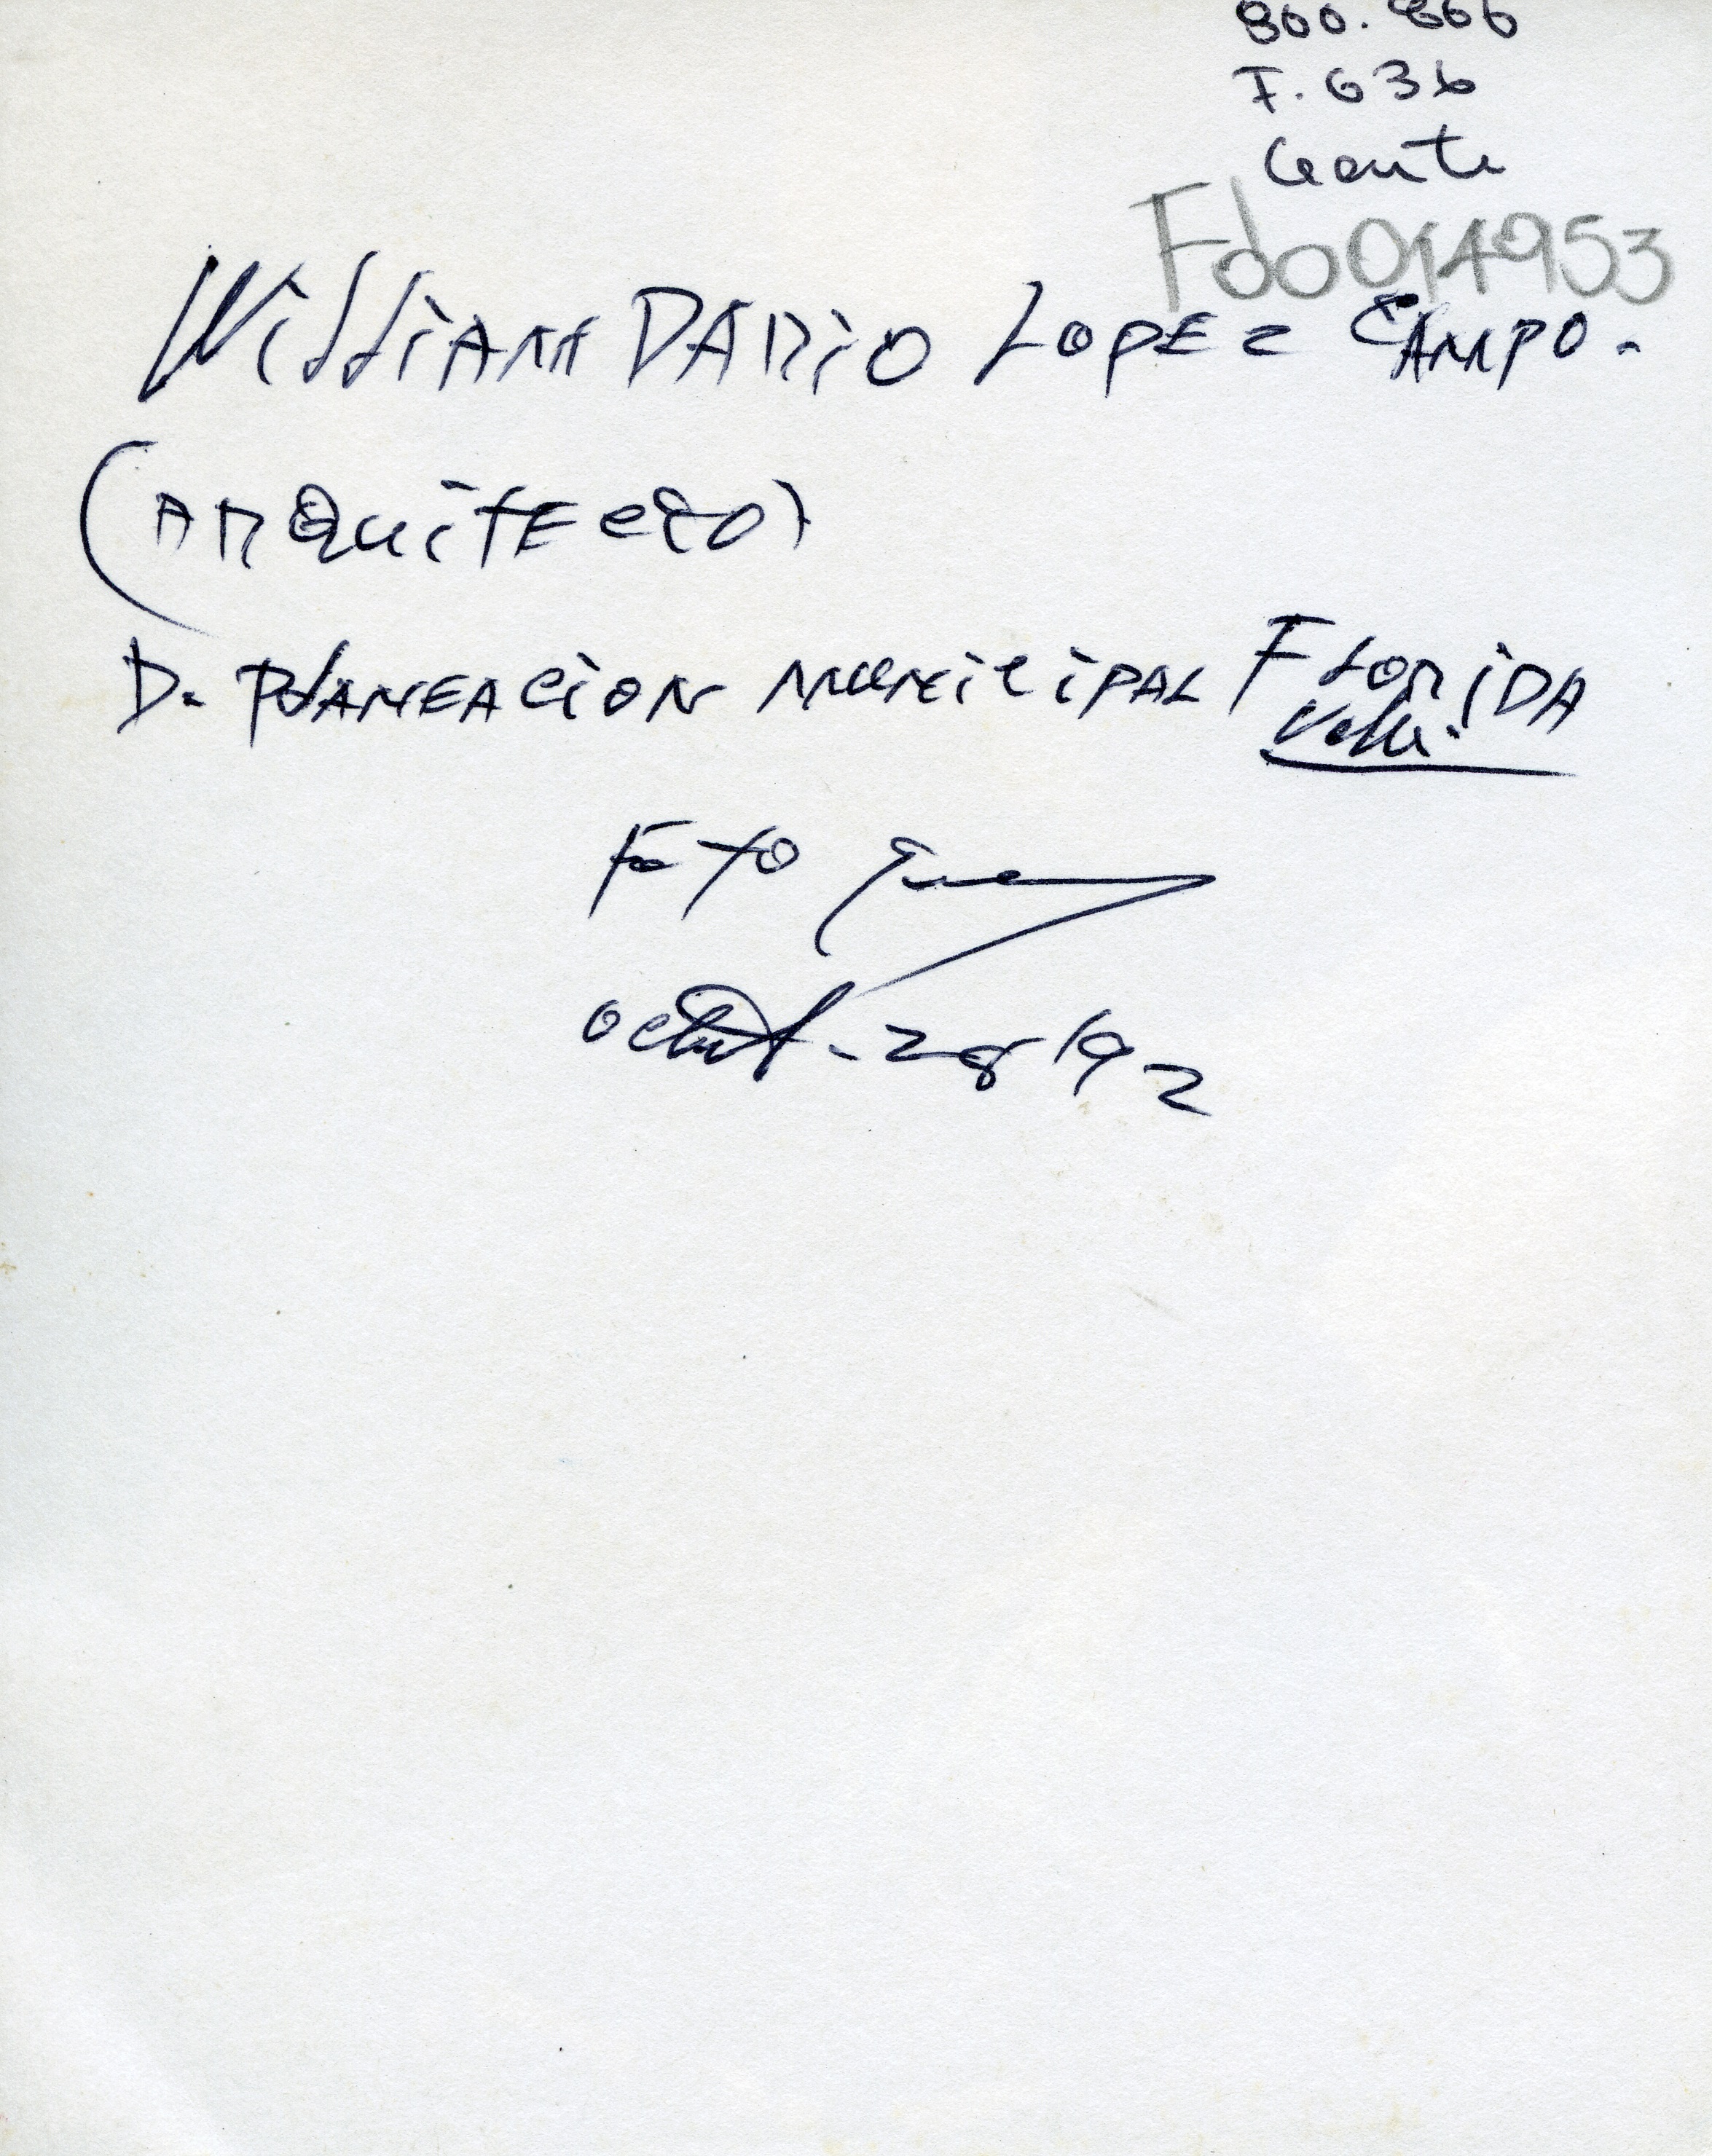 800.866
F. 636
Gente
Fdo014953
William DARIO LOPEZ CAMPO.
(ARQUITECTO)
D. PLANEACION MUNICIPAL FLORIDA
Valle.
Foto
octub. 28/92